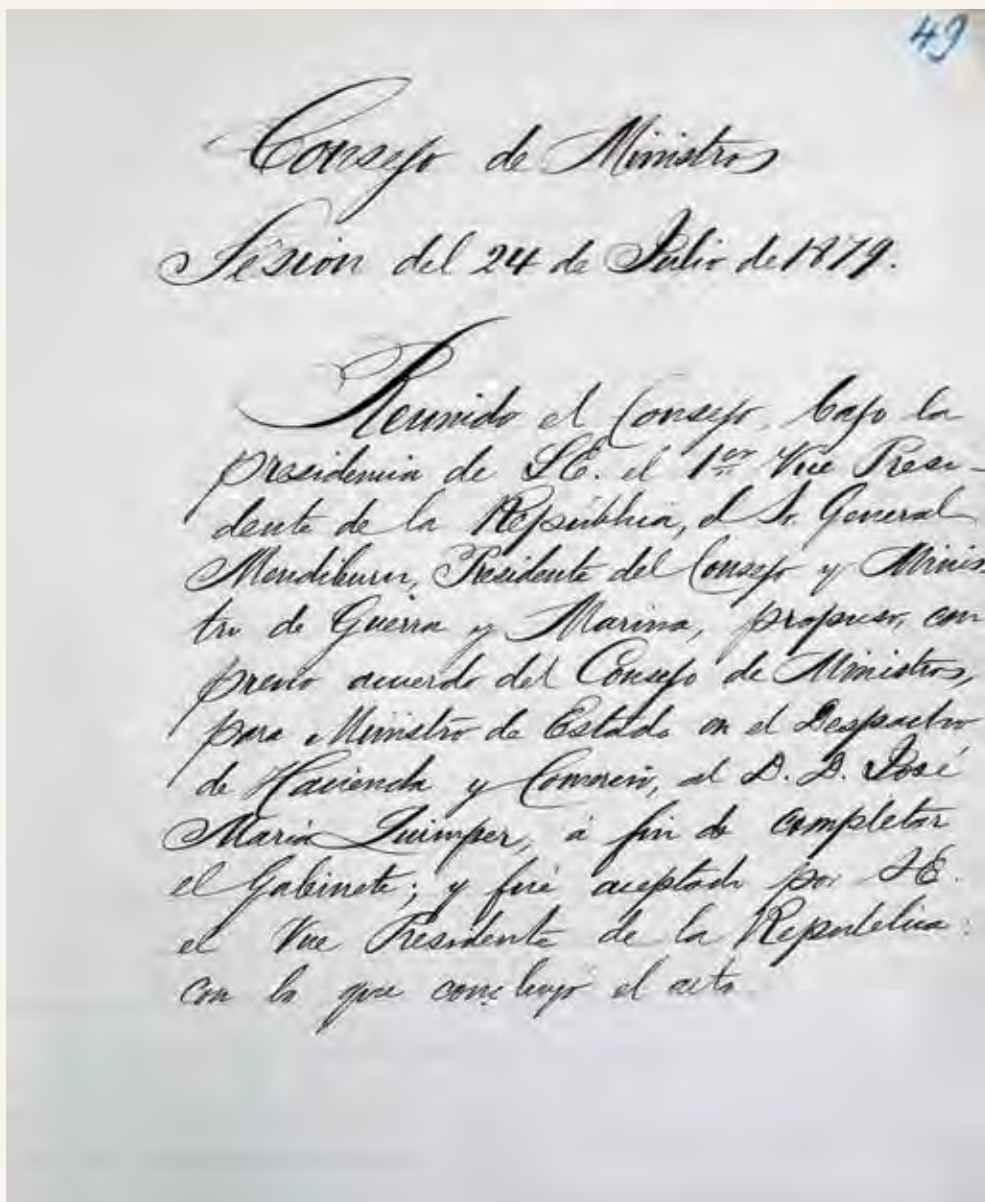 49
Consejo de Ministros
Sesion del 24 de Julio de 1879.
Reunido el Consejo, bajo la
presidencia de S.E. el 1er Vice Presi-
dente de la República, el Sr. General
Mendiburu, Presidente del Consejo y Minis-
tro de Guerra y Marina, propuso, con
previo acuerdo del Consejo de Ministros,
para Ministro de Estado en el Despacho
de Hacienda y Comercio, al D. D. José
Maria Quimper, á fin de completar
el Gabinete; y fué aceptado por S.E.
el Vice Presidente de la República:
con lo que concluyó el acto.